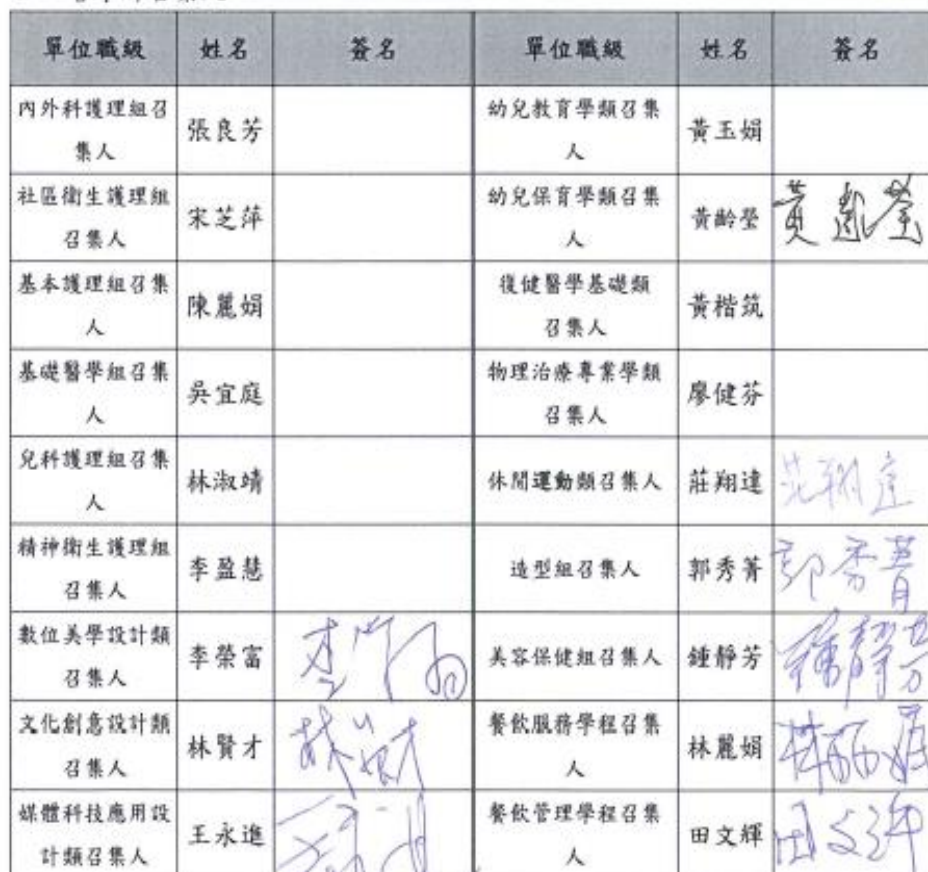 單位職級 姓名 簽名 單位職級 姓名 簽名
內外科護理組召集人 張良芳 幼兒教育學類召集人 黃玉娟
社區衛生護理組召集人 宋芝萍 幼兒保育學類召集人 黃齡瑩 黃齡瑩
基本護理組召集人 陳麗娟 復健醫學基礎類召集人 黃楷筑
基礎醫學組召集人 吳宜庭 物理治療專業學類召集人 廖健芬
兒科護理組召集人 林淑靖 休閒運動類召集人 莊翔達 莊翔達
精神衛生護理組召集人 李盈慧 造型組召集人 郭秀菁 郭秀菁
數位美學設計類召集人 李榮富 美容保健組召集人 鍾靜芳 鍾靜芳
文化創意設計類召集人 林賢才 餐飲服務學程召集人 林麗娟 林麗娟
媒體科技應用設計類召集人 王永進 餐飲管理學程召集人 田文輝 田文輝